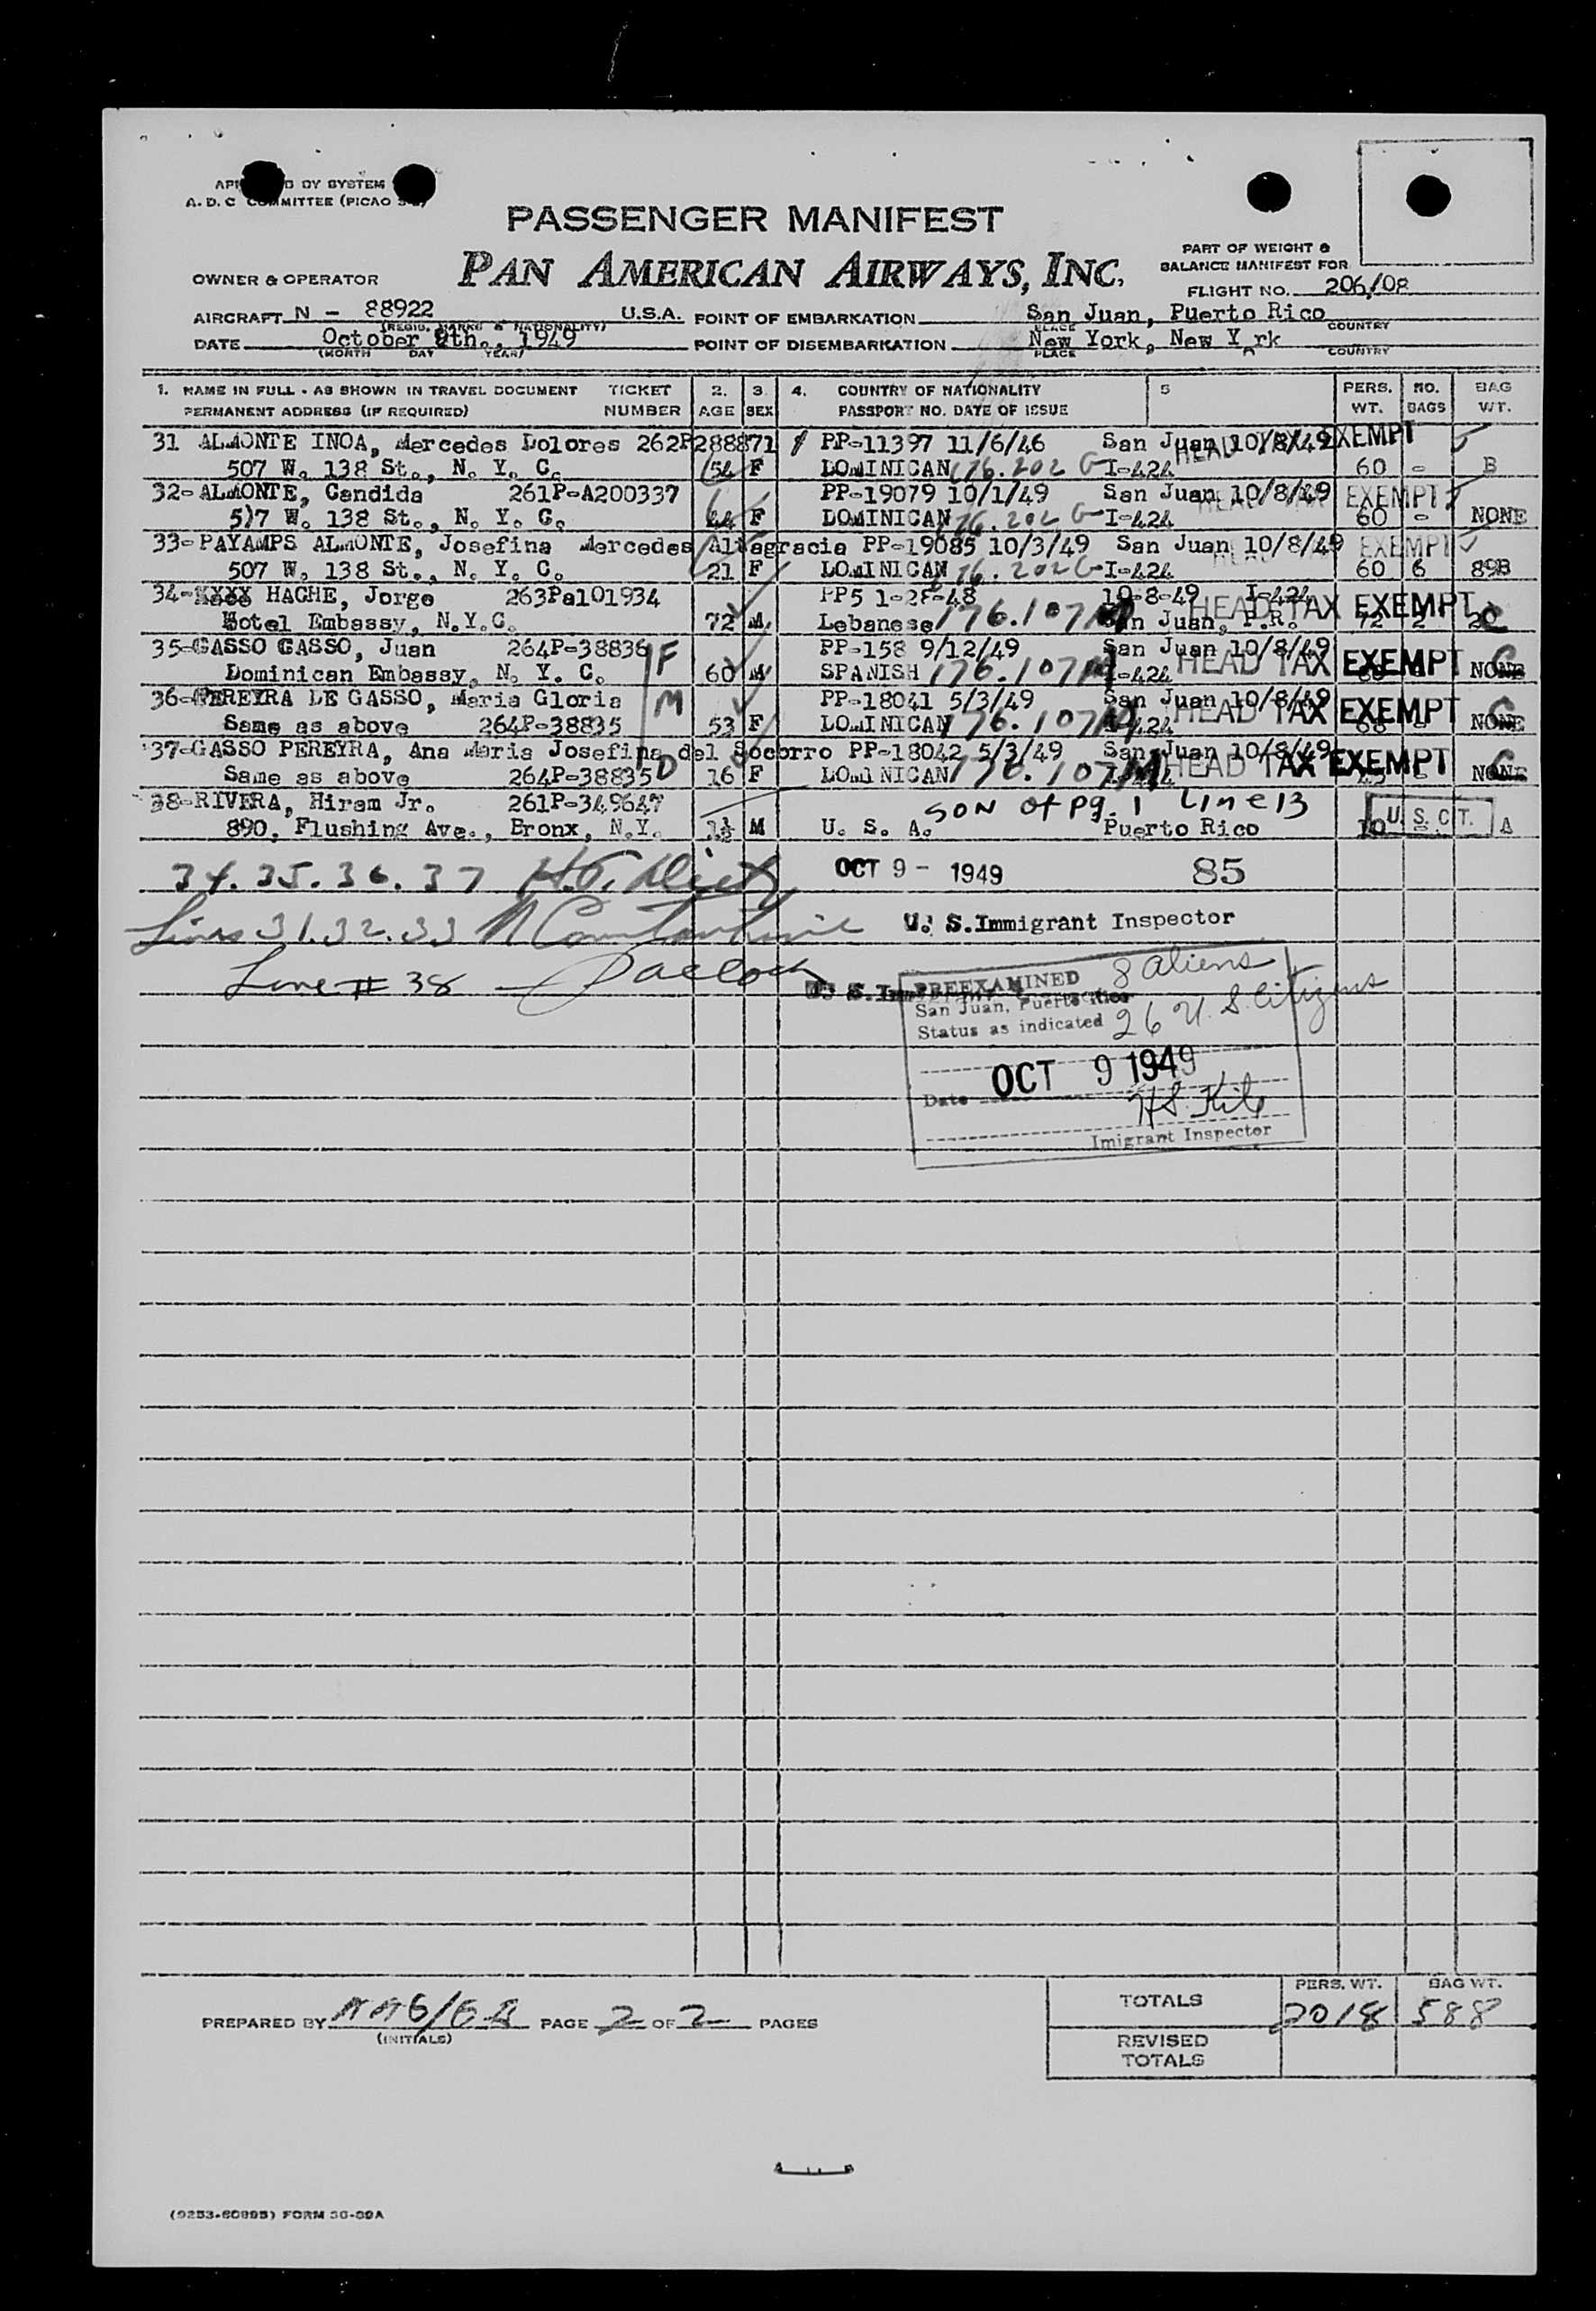 A. D. C COMMITTEE (PICAO
PASSENGER MANIFEST
PAN AMERICAN AIRWAYS, INC.
PART OF WEIGHT &
BALANCE MANIFEST FOR
OWNER & OPERATOR
FLIGHT NO. 206/08
AIRCRAFT N - 88922 U.S.A. POINT OF EMBARKATION San Juan, Puerto Rico
(REGIS. MARKS & NATIONALITY) PLACE COUNTRY
DATE October 9th., 1949 POINT OF DISEMBARKATION New York, New Y rk
(MONTH DAY YEAR) PLACE COUNTRY
1. NAME IN FULL - AS SHOWN IN TRAVEL DOCUMENT TICKET 2. 3. 4. COUNTRY OF NATIONALITY 5 PERS. NO. BAG
PERMANENT ADDRESS (IF REQUIRED) NUMBER AGE SEX PASSPORT NO. DATE OF ISSUE WT. BAGS WT.
31 ALMONTE INOA, Mercedes Dolores 262P288871 PP-11397 11/6/46 San Juan 10/8/49 HEAD TAX EXEMPT
507 W. 138 St., N. Y. C. 54 F DOMINICAN 176.202 G I-424 60 - B
32-ALMONTE, Candida 261P-A200337 PP-19079 10/1/49 San Juan 10/8/49 HEAD TAX EXEMPT
5)7 W. 138 St., N. Y. C. 44 F DOMINICAN 176.202 G I-424 60 - NONE
33-PAYAMPS ALMONTE, Josefina Mercedes Altagracia PP-19085 10/3/49 San Juan 10/8/49 HEAD EXEMPT
507 W. 138 St., N. Y. C. 21 F DOMINICAN 176.202 G I-424 60 6 89B
34-XXXX HACHE, Jorge 263Pa101934 PP5 1-28-48 10-8-49 I-424 HEAD TAX EXEMPT
Hotel Embassy, N.Y.C. 72 M Lebanese 176.107 M San Juan, P.R. 72 2 20 C
35-GASSO GASSO, Juan 264P-38836 F PP-158 9/12/49 San Juan 10/8/49 HEAD TAX EXEMPT
Dominican Embassy, N. Y. C. 60 M SPANISH 176.107M I-424 NONE C
36-PEREYRA DE GASSO, Maria Gloria M PP-18041 5/3/49 San Juan 10/8/49 HEAD TAX EXEMPT
Same as above 264P-38835 53 F DOMINICAN 176.107M I-424 68 - NONE C
37-GASSO PEREYRA, Ana Maria Josefina del Socorro PP-18042 5/3/49 San Juan 10/8/49 HEAD TAX EXEMPT
Same as above 264P-38835 D 16 F DOMINICAN 176.107M NONE C
38-RIVERA, Hiram Jr. 261P-349647 SON of pg. 1 Line 13
890, Flushing Ave., Bronx, N.Y. 1½ M U. S. A. Puerto Rico 10 U. S. C T. A
34.35.36.37 OCT 9 - 1949 85
Lines 31.32.33 U. S. Immigrant Inspector
Line # 38
PREEXAMINED 8 aliens
San Juan, Puerto Rico
Status as indicated 26 U. S. Citizens
OCT 9 1949
Date
Imigrant Inspector
TOTALS PERS. WT. 2018 BAG WT. 588
PREPARED BY (INITIALS) PAGE 2 OF 2 PAGES
REVISED
TOTALS
(9253-60895) FORM 30-09A